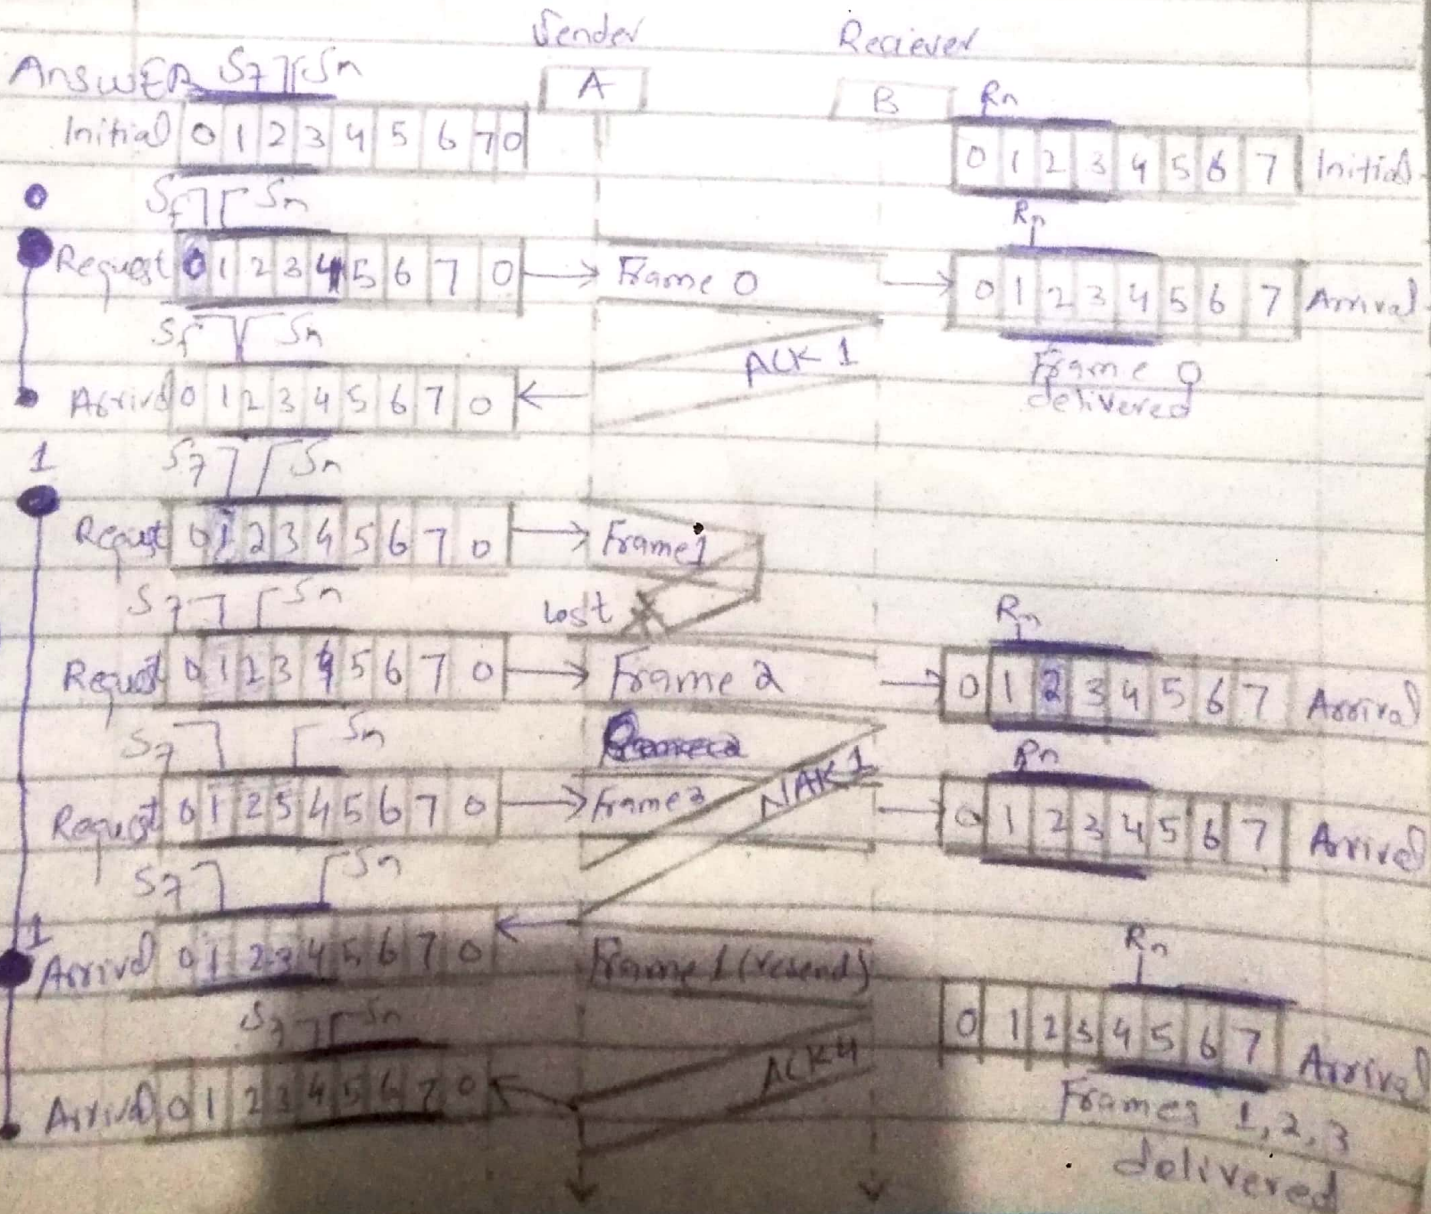 Sender Reciever
ANSWER Sf Sn A B Rn
Initial 0 1 2 3 4 5 6 7 0
0 1 2 3 4 5 6 7 Initial
0 Sf Sn Rn
Request 0 1 2 3 4 5 6 7 0 Frame 0 0 1 2 3 4 5 6 7 Arrival
Sf Sn ACK 1 Frame 0
Arrival 0 1 2 3 4 5 6 7 0 delivered
1 Sf Sn
Request 0 1 2 3 4 5 6 7 0 Frame 1
Sf Sn Lost Rn
Request 0 1 2 3 4 5 6 7 0 Frame 2 0 1 2 3 4 5 6 7 Arrival
Sf Sn NAK 1 Rn
Request 0 1 2 3 4 5 6 7 0 Frame 3 0 1 2 3 4 5 6 7 Arrival
Sf Sn
1 Rn
Arrival 0 1 2 3 4 5 6 7 0 Frame 1 (resend)
Sf Sn 0 1 2 3 4 5 6 7 Arrival
Arrival 0 1 2 3 4 5 6 7 0 ACK 4 Frames 1, 2, 3
delivered